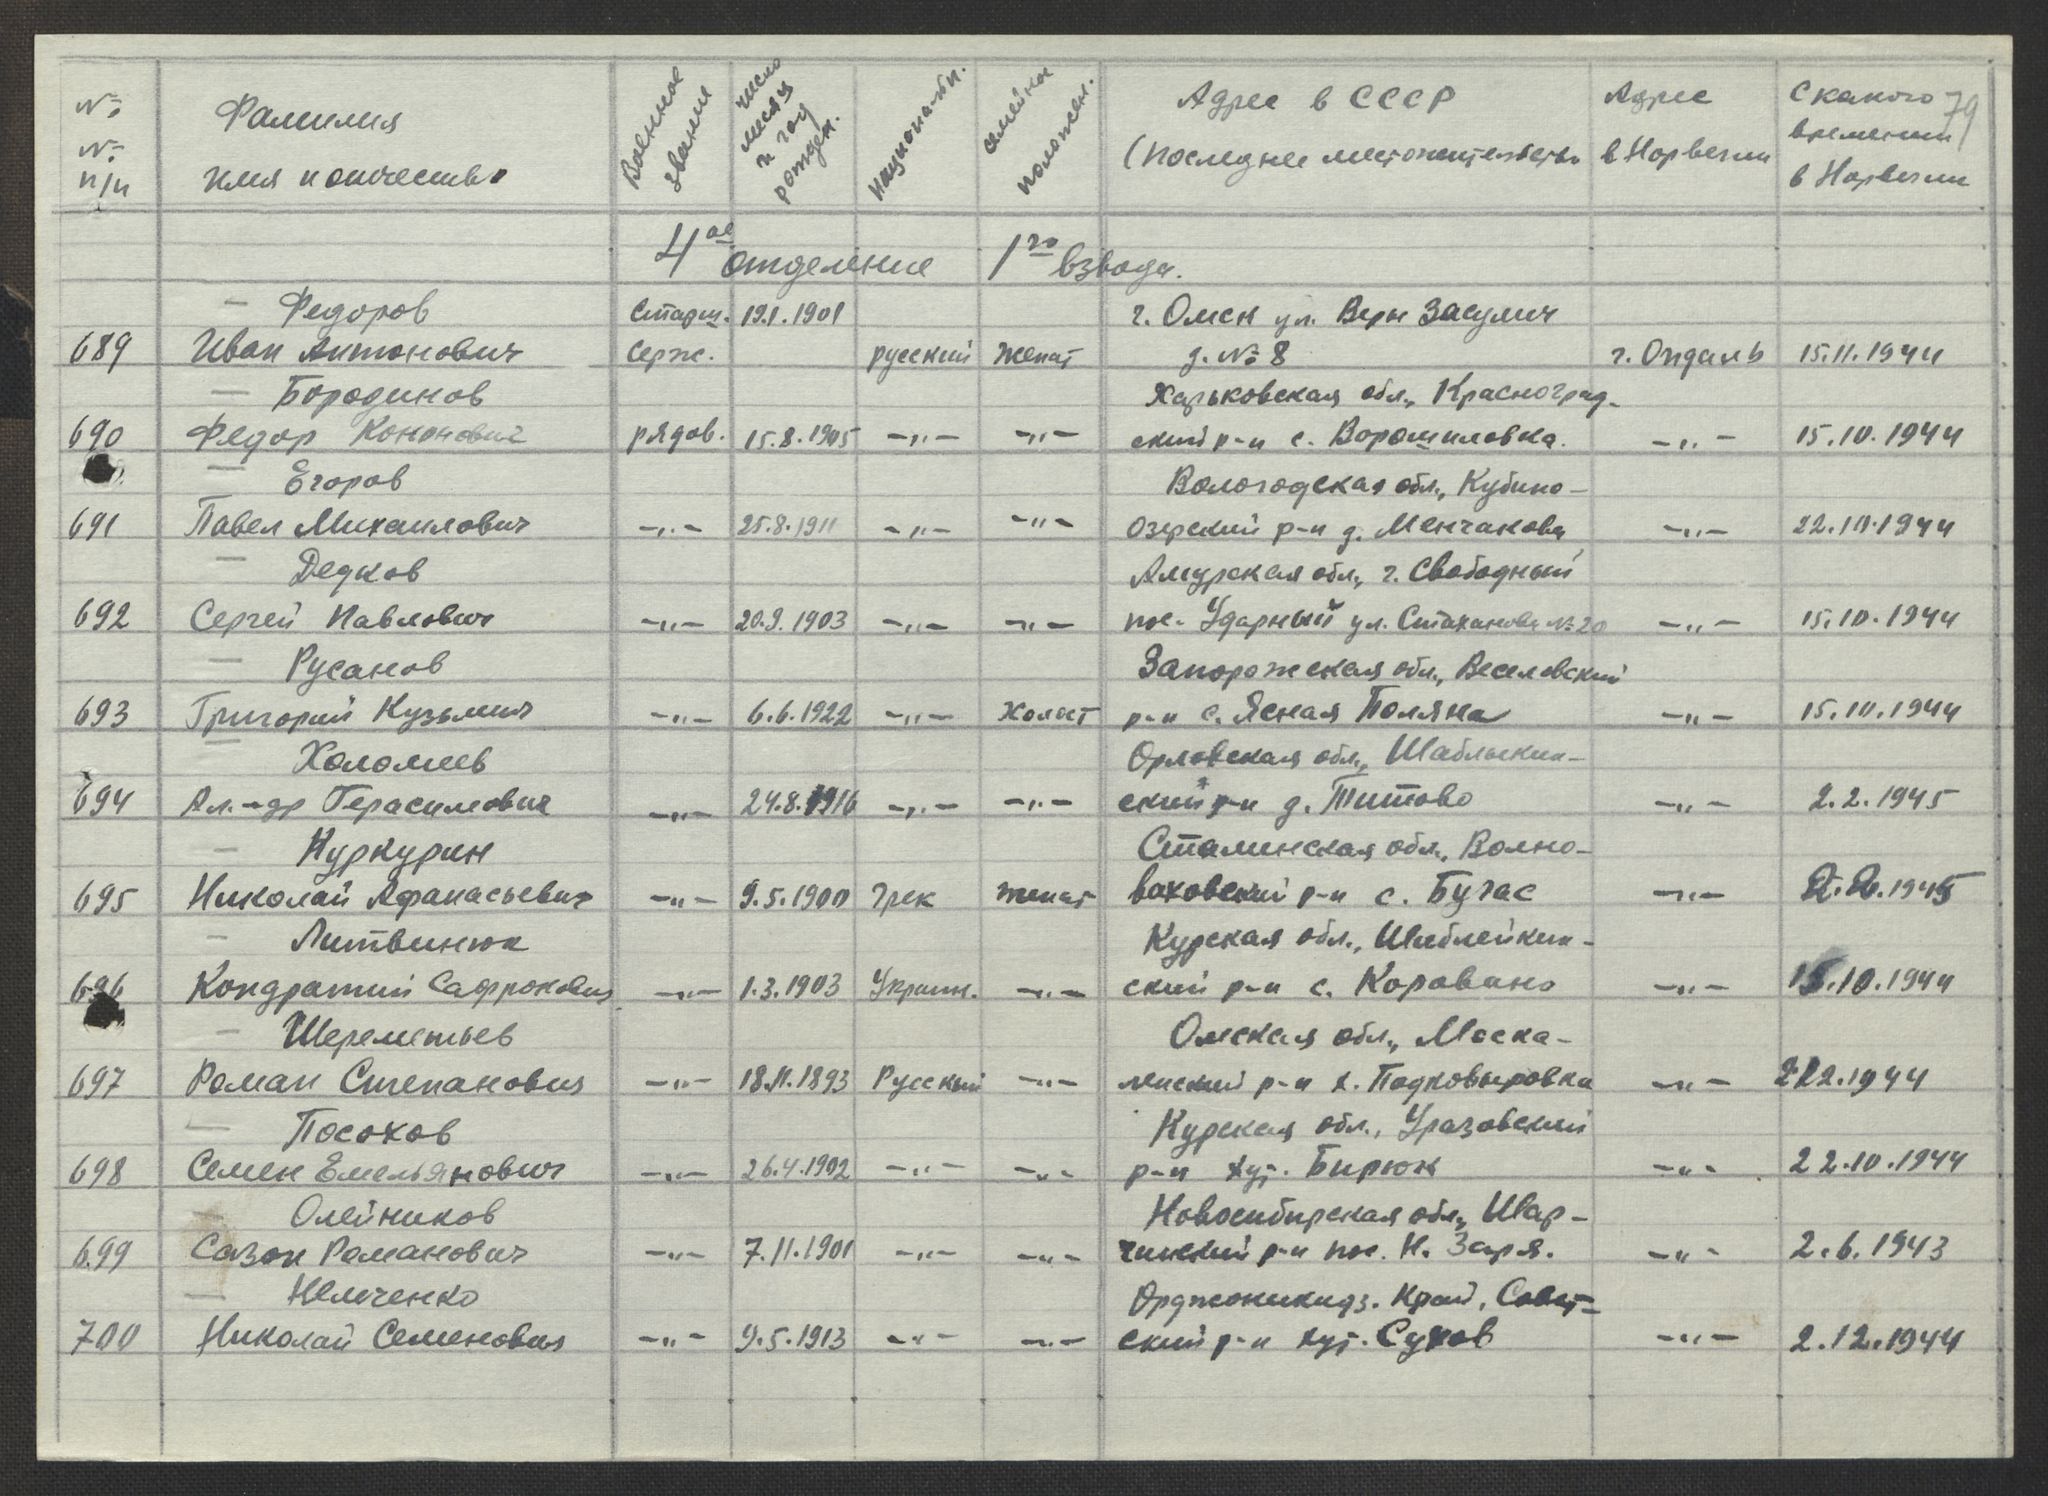 № Фамилия Военное звание число месяц и год рожден. национальн. семейн. положен. Адрес в СССР Адрес С какого 79
№ п/п имя и отчество (последнее местожительств. в Норвегии времени в Норвегии
4ое отделение 1го взвода.
— Федоров Старш. 19.1.1901 г. Омск ул. Веры Засулич
689 Иван Антонович Серж. русский женат д. № 8 г. Опдаль 15.11.1944
— Бородинов Харьковская обл., Красноград-
690 Федор Кононович рядов. 15.8.1905 —„— —„— ский р-н с. Ворошиловка. —„— 15.10.1944
— Егоров Вологодская обл., Кубино-
691 Павел Михаилович —„— 25.8.1911 —„— —„— озерский р-н д. Менчаково —„— 22.10.1944
— Дедков Амурская обл., г. Свободный
692 Сергей Павлович —„— 20.9.1903 —„— —„— пос. Ударный ул. Стаханова № 20 —„— 15.10.1944
— Русанов Запорожская обл., Веселовский
693 Григорий Кузьмич —„— 6.6.1922 —„— холост р-н с. Ясная Поляна —„— 15.10.1944
— Холомеев Орловская обл., Шаблыкин-
694 Ал-др Герасимович —„— 24.8.1916 —„— —„— ский р-н д. Титово —„— 2.2.1945
— Куркурин Сталинская обл., Волно-
695 Николай Афанасьевич —„— 9.5.1900 Грек женат ваховский р-н с. Бугас —„— 2.2.1945
— Литвинюк Курская обл., Шаблейкин-
696 Кондратий Сафронович —„— 1.3.1903 Украин. —„— ский р-н с. Коровино —„— 15.10.1944
— Шереметьев Омская обл., Моска-
697 Роман Степанович —„— 18.11.1893 Русский —„— ленский р-н х. Подковыровка —„— 2.12.1944
— Посохов Курская обл., Уразовский
698 Семен Емельянович —„— 26.4.1902 —„— —„— р-н хут. Бирюк —„— 22.10.1944
— Олейников Новосибирская обл., Шар-
699 Сазон Романович —„— 7.11.1901 —„— —„— чинский р-н пос. Н. Заря. —„— 2.6.1943
— Немченко Орджоникидз. Край, Совет-
700 Николай Семенович —„— 9.5.1913 —„— —„— ский р-н хут. Сухов —„— 2.12.1944